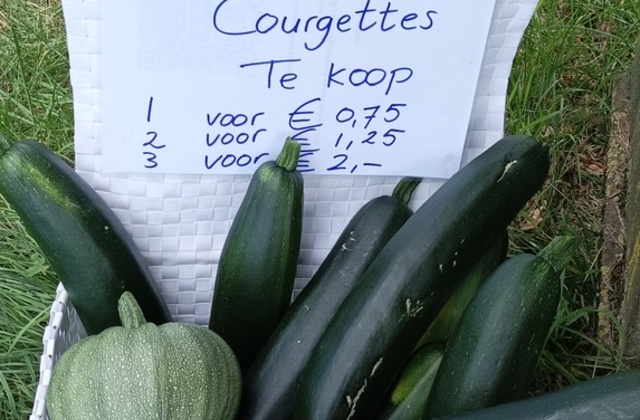 Courgettes
Te koop
1 voor € 0,75
2 voor € 1,25
3 voor € 2,-